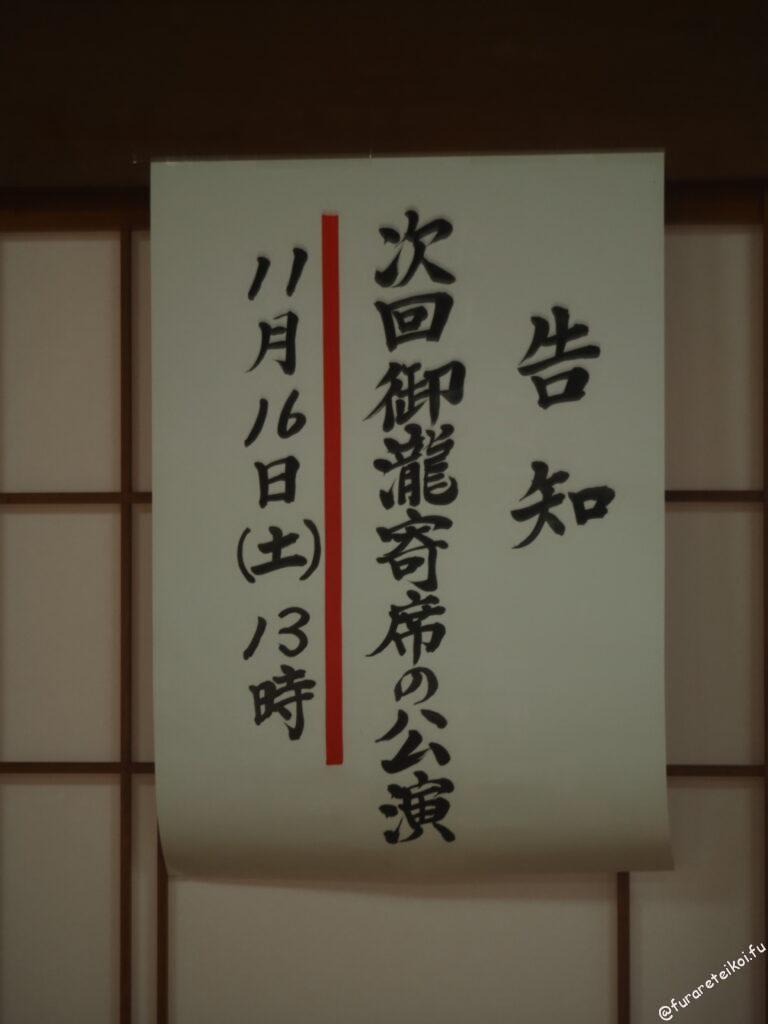 告知
次回御瀧寄席の公演
11月16日(土)13時
@furareteikoi.fu